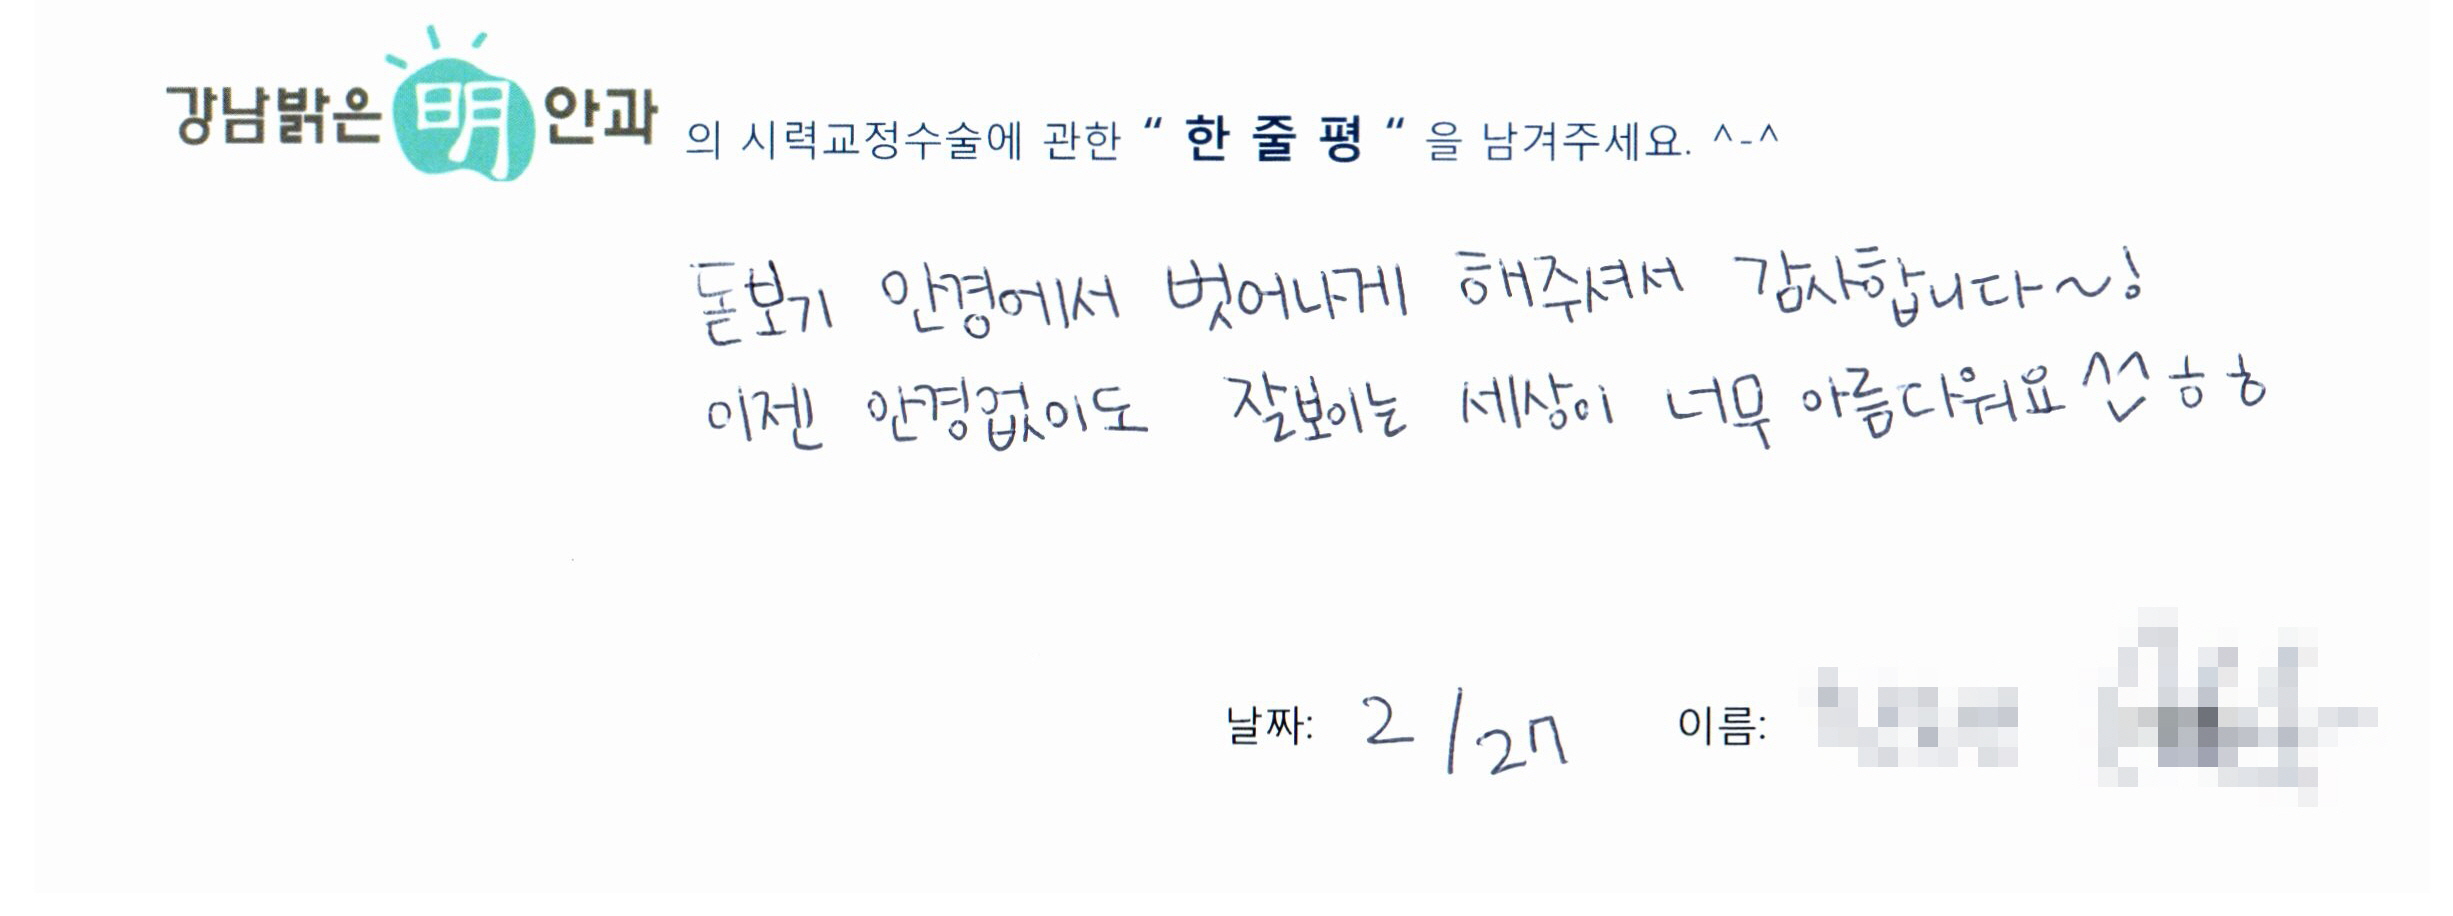 강남밝은 明 안과 의 시력교정수술에 관한 “ 한 줄 평 “ 을 남겨주세요. ^-^
돋보기 안경에서 벗어나게 해주셔서 감사합니다~!
이젠 안경없이도 잘보이는 세상이 너무 아름다워요 ^^ ㅎㅎ
날짜: 2/27 이름: